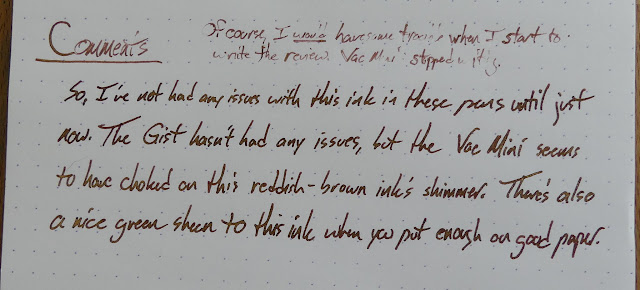 Comments
Of course, I would have some trouble when I start to
write the review. Vac Mini stopped writing.
So, I've not had any issues with this ink in these pens until just
now. The Gist hasn't had any issues, but the Vac Mini seems
to have choked on this reddish-brown ink's shimmer. There's also
a nice green sheen to this ink when you put enough on good paper.